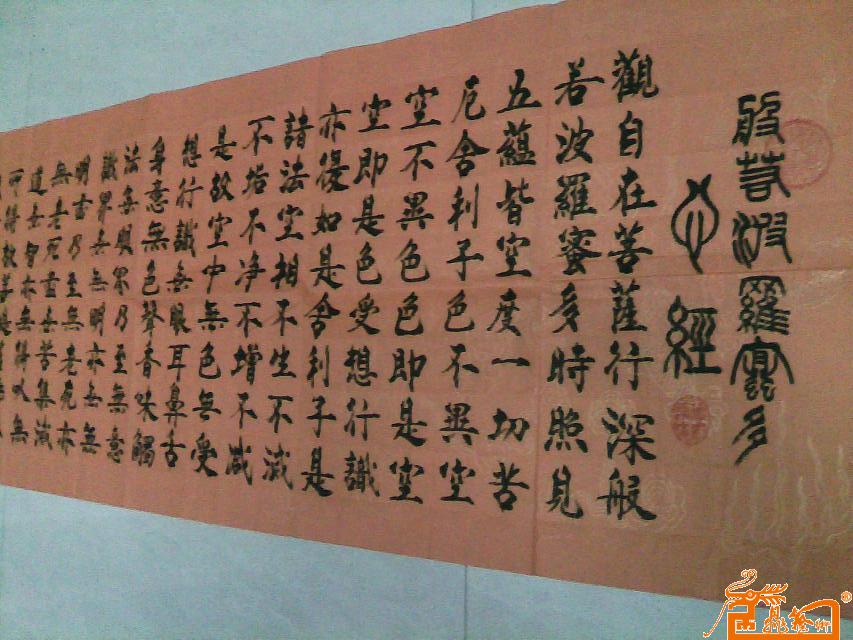 般若波羅蜜多
心經
觀自在菩薩行深般
若波羅蜜多時照見
五蘊皆空度一切苦
厄舍利子色不異空
空不異色色即是空
空即是色受想行識
亦復如是舍利子是
諸法空相不生不滅
不垢不净不增不减
是故空中無色無受
想行識無眼耳鼻舌
身意無色聲香味觸
法無眼界乃至無意
識界無無明亦無無
明盡乃至無老死亦
無老死盡無苦集滅
道無智亦無得以無
所得故菩提